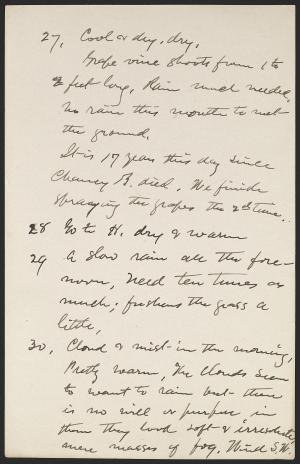 27, Cool & dry, dry.
Grape vine shoots from 1 to
2 feet long, Rain much needed,
no rain this month to wet
the ground.
It is 17 years this day since
Chancy B. died. We finish
spraying the grapes the 2d time.
28 Go to H. dry & warm
29 A slow rain all the fore-
noon, need ten times as
much; freshens the grass a
little,
30, Cloud & mist in the morning,
Pretty warm, the clouds seem
to want to rain but there
is no will or purpose in
them they look soft & irresolute,
mere masses of fog. Wind S.W.